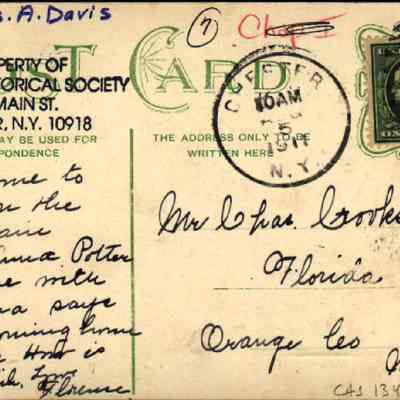 s. A. Davis
7
Chap I
ST CARD
OPERTY OF
TORICAL SOCIETY
MAIN ST.
R, N.Y. 10918
MAY BE USED FOR
PONDENCE
THE ADDRESS ONLY TO BE
WRITTEN HERE
CHESTER
10 AM
5
1911
N.Y.
ome to
the
Potter
with
says
oming home
is
Florence
Mr Chas. Crooks
Florida
Orange Co
N
CAS 134